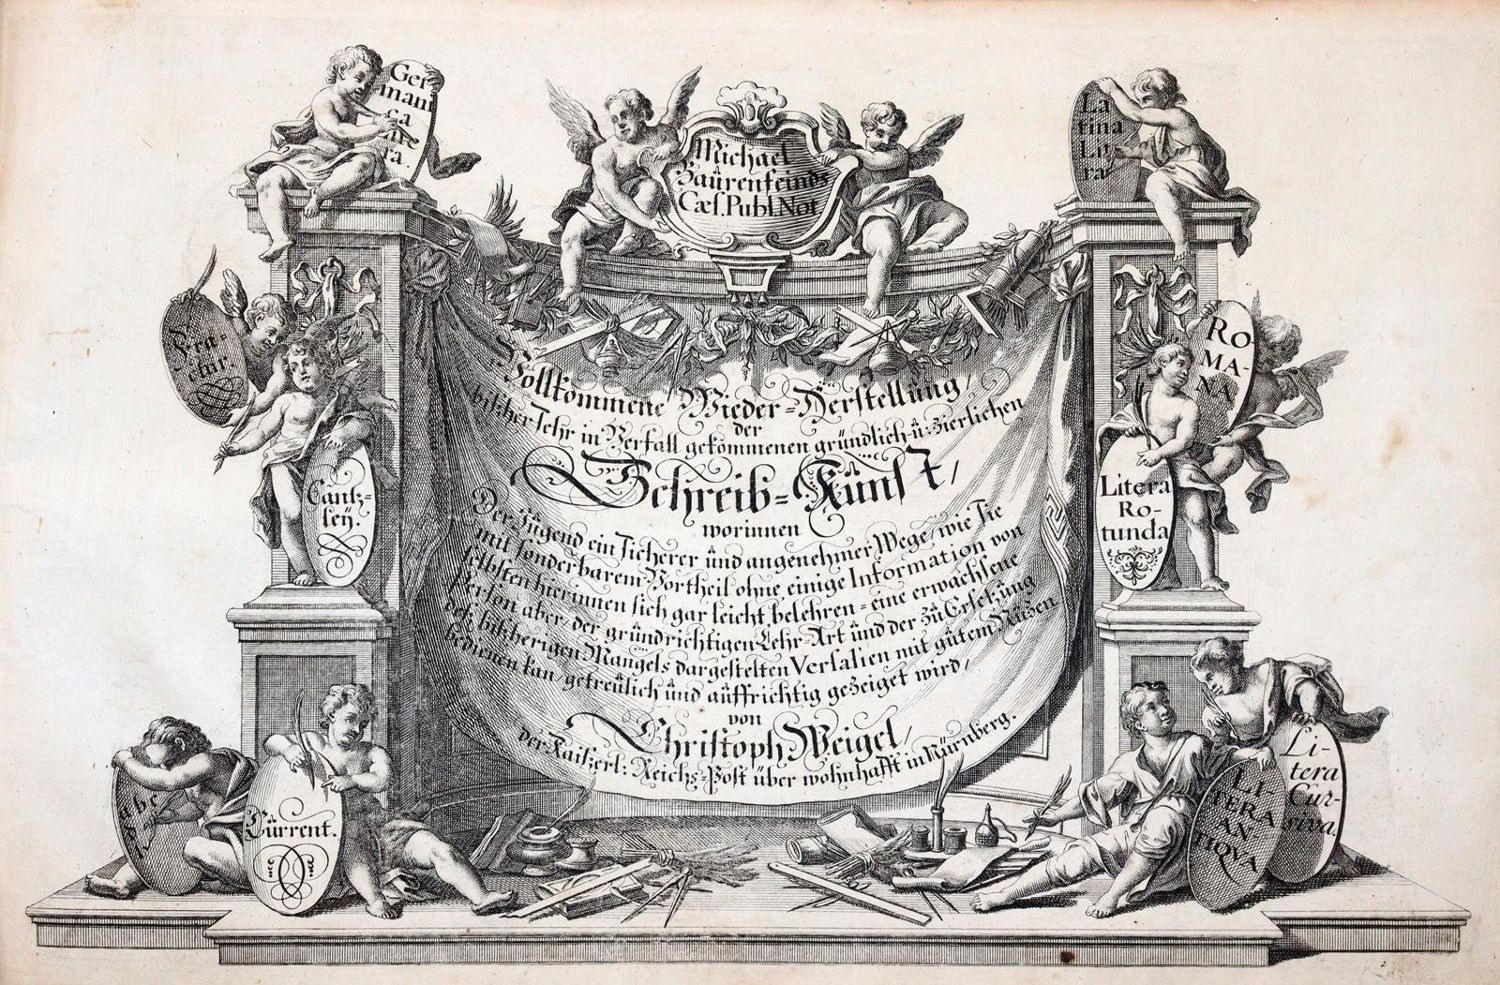 Ger
mani
ca
lite
ra.
Michael
Baürenfeinds
Cæs. Publ. Not
La
tina
Lit
ra
Fra-
ctur.
Cantz-
leÿ.
RO-
MA-
NA
Litera
Ro-
tunda
Vollkommene Wieder=Herstellüng/
der
bißher sehr in Verfall gekommenen gründlich ü: zierlichen
Schreib=Künst/
worinnen
Der Jügend ein sicherer ünd angenehmer Wege/ wie Sie
mit sonderbarem Vortheil ohne einige Information von
selbsten hierinnen sich gar leicht belehren= eine erwachsene
Person aber/ der gründrichtigen Lehr=Art ünd der zü Ersetzüng
deß bißherigen Mangels dargestelten Versalien mit gütem Nützen
bedienen kan/ getreülich ünd aüffrichtig gezeiget wird/
von
Christoph Weigel/
der Kaißerl: Reichs=Post über wohnhafft in Nürnberg.
Cürrent.
LI-
TERA
AN
TIQVA
Li-
tera
Cur-
siva.